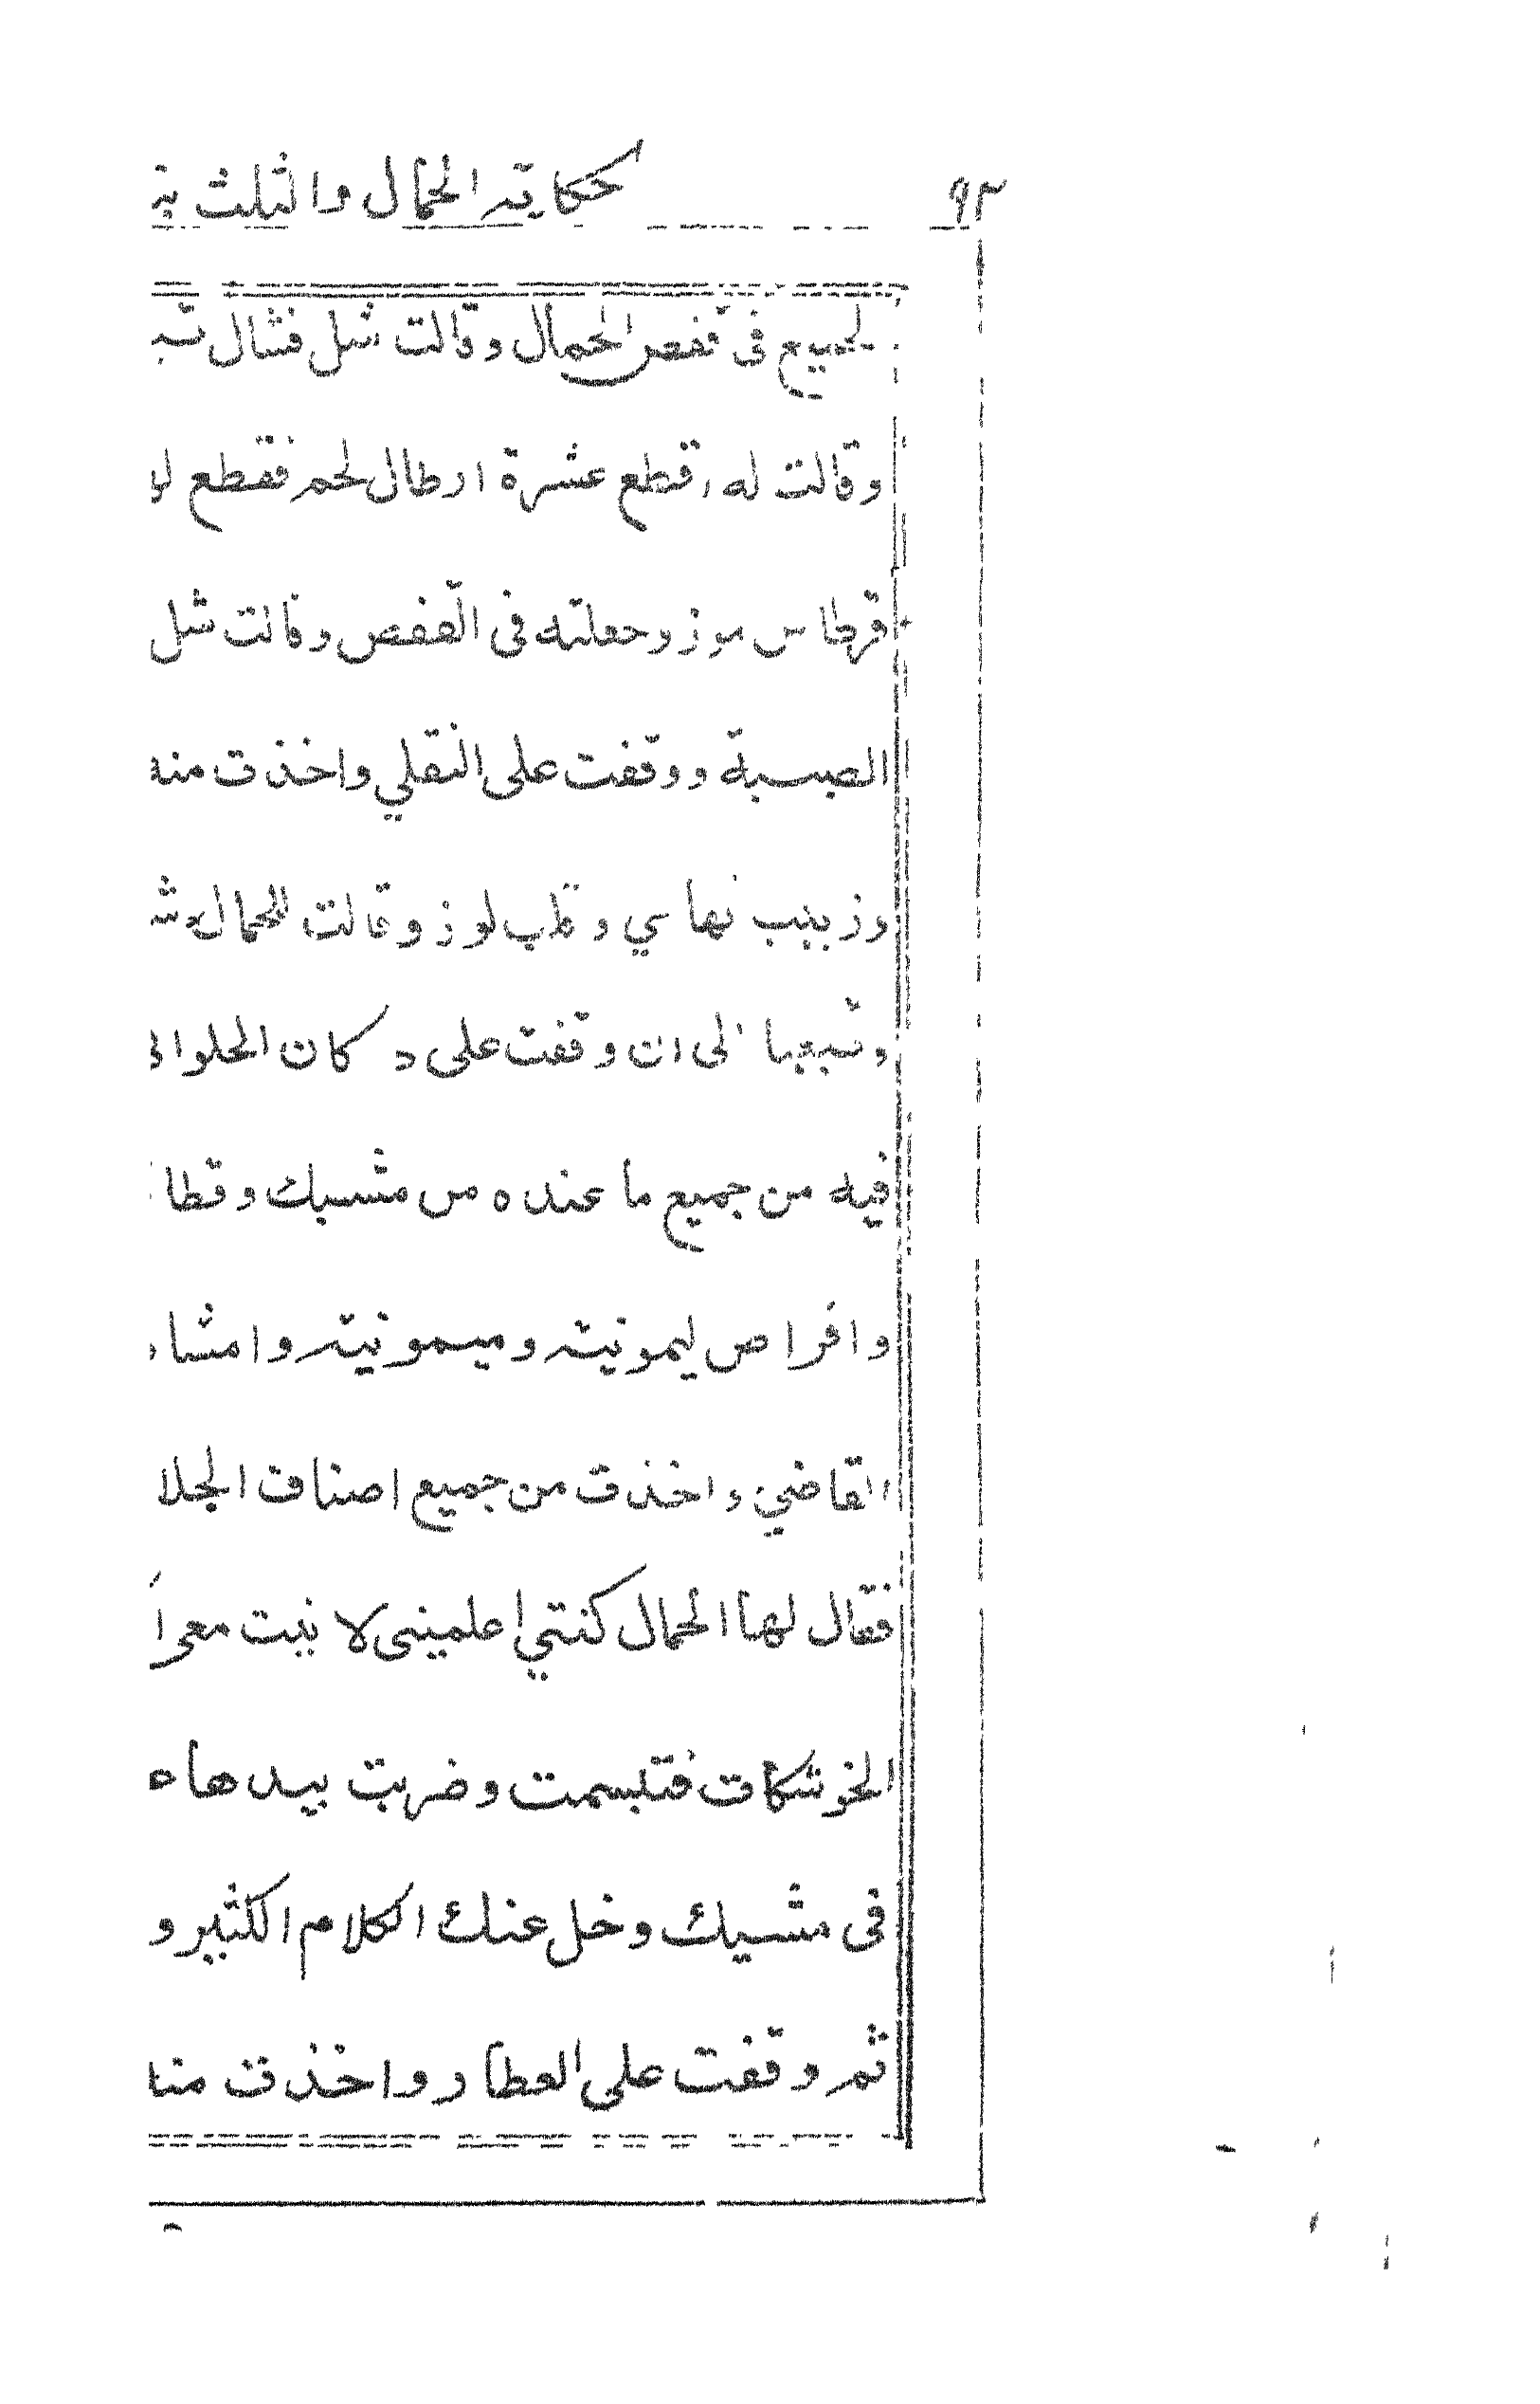 ٩٣
حكاية الحمال والثلث بنـ
الجميع فى قفص الحمال وقالت شل فشال
وقالت له اقطع عشرة ارطال لحم فقطع
قرطاس موز وجعلته فى القفص وقالت شل
الصبية ووقفت على النقلي واخذت منه
وزبيب تهامي وقلب لوز وقالت للحمال
وتبعها الى ان وقفت على دكان الحلوا
فيه من جميع ما عنده من مشبك وقطا
واقراص ليمونية وميمونية وامشا
القاضي واخذت من جميع اصناف الحلا
فقال لها الحمال كنتي اعلمينى لا نيت معى
الخوشكات فتبسمت وضربت بيدها
فى مشيك وخل عنك الكلام الكثير و
ثم وقفت على العطار واخذت منا